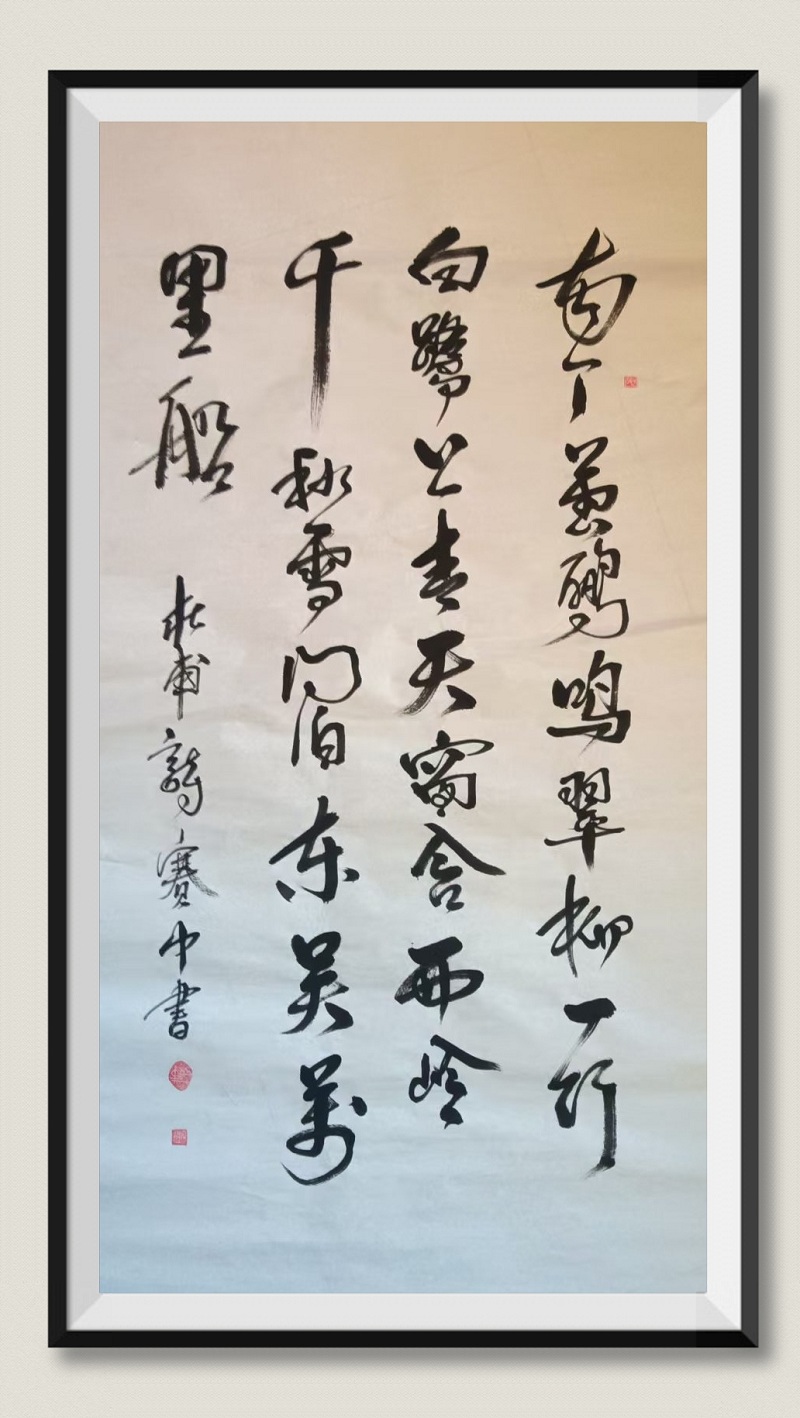 两个黄鹂鸣翠柳一行
白鹭上青天窗含西岭
千秋雪门泊东吴萬
里船
杜甫詩赛中書